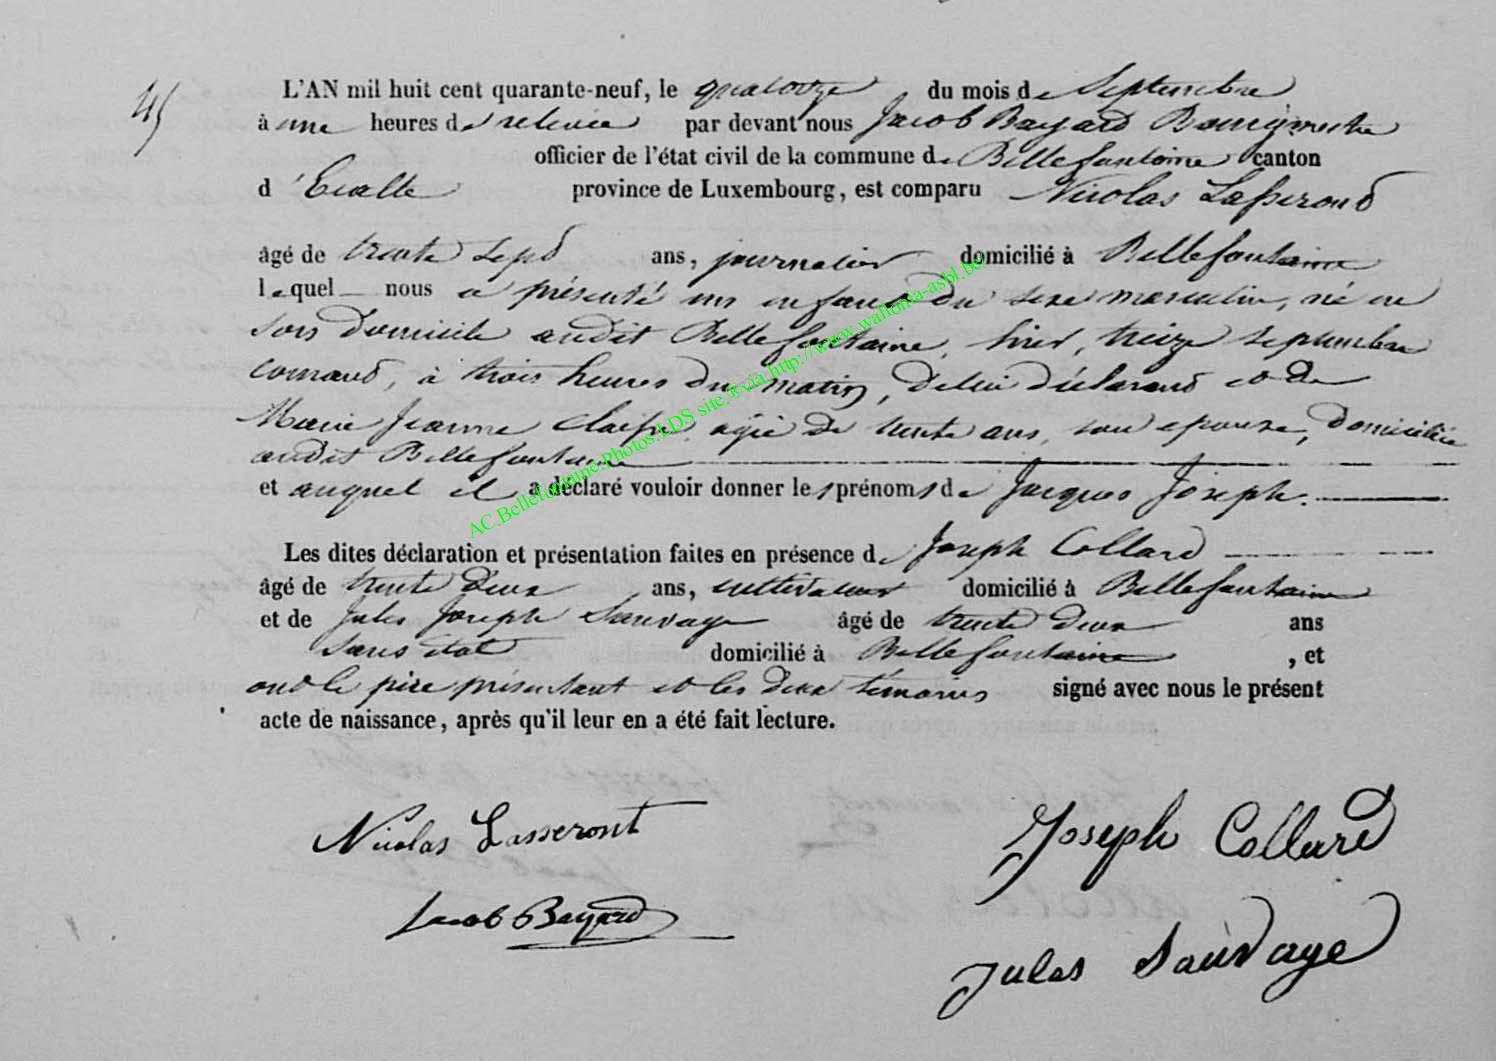 45
L'AN mil huit cent quarante-neuf, le quatorze du mois de Septembre
à une heures de relevée par devant nous Jacob Bayard Bourgmestre
officier de l'état civil de la commune de Bellefontaine canton
d'Etalle province de Luxembourg, est comparu Nicolas Lasseront
âgé de trente sept ans, journalier domicilié à Bellefontaine
lequel nous a présenté un enfant du sexe masculin, né en
son domicile audit Bellefontaine, hier, treize septembre
courant, à trois heures du matin, de lui déclarant et de
Marie Jeanne agée de trente ans, son epouse, domiciliée
audit Bellefontaine
et auquel il a déclaré vouloir donner les prénoms de Jacques Joseph.
Les dites déclaration et présentation faites en présence de Joseph Collard
âgé de trente deux ans, cultivateur domicilié à Bellefontaine
et de Jules Joseph Sauvage âgé de trente deux ans
sans état domicilié à Bellefontaine, et
ont le père présentant et les deux témoins signé avec nous le présent
acte de naissance, après qu'il leur en a été fait lecture.
Nicolas Lasseront
Joseph Collard
Jacob Bayard
Jules Sauvage
AC.Bellefontaine.Photos.LDS site.®via http://www.wallonia-asbl.be/